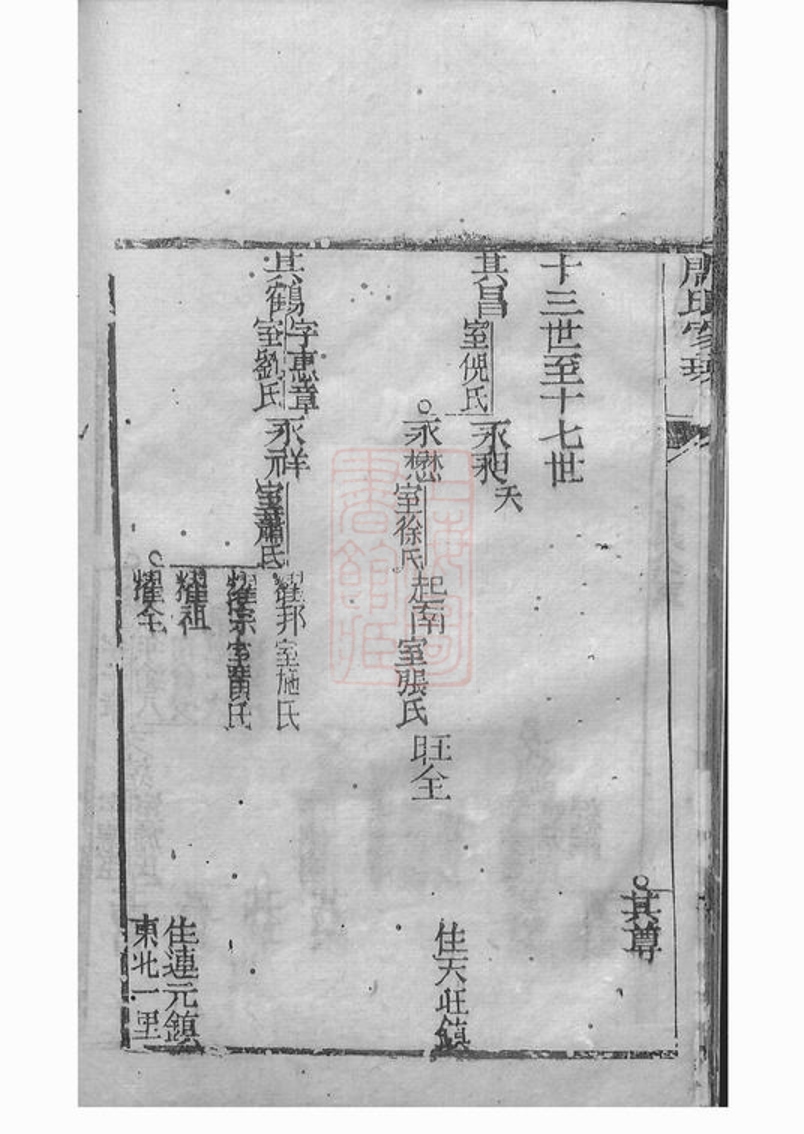 其尊
十三世至十七世
其昌
室倪氏
永和
夭
永懋
室徐氏
起南
室張氏
旺全
住天旺鎮
其鶴
字惠章
室劉氏
永祥
室蕭氏
耀邦
室施氏
耀宗
室黃氏
耀祖
耀全
住連元鎮
東北一里